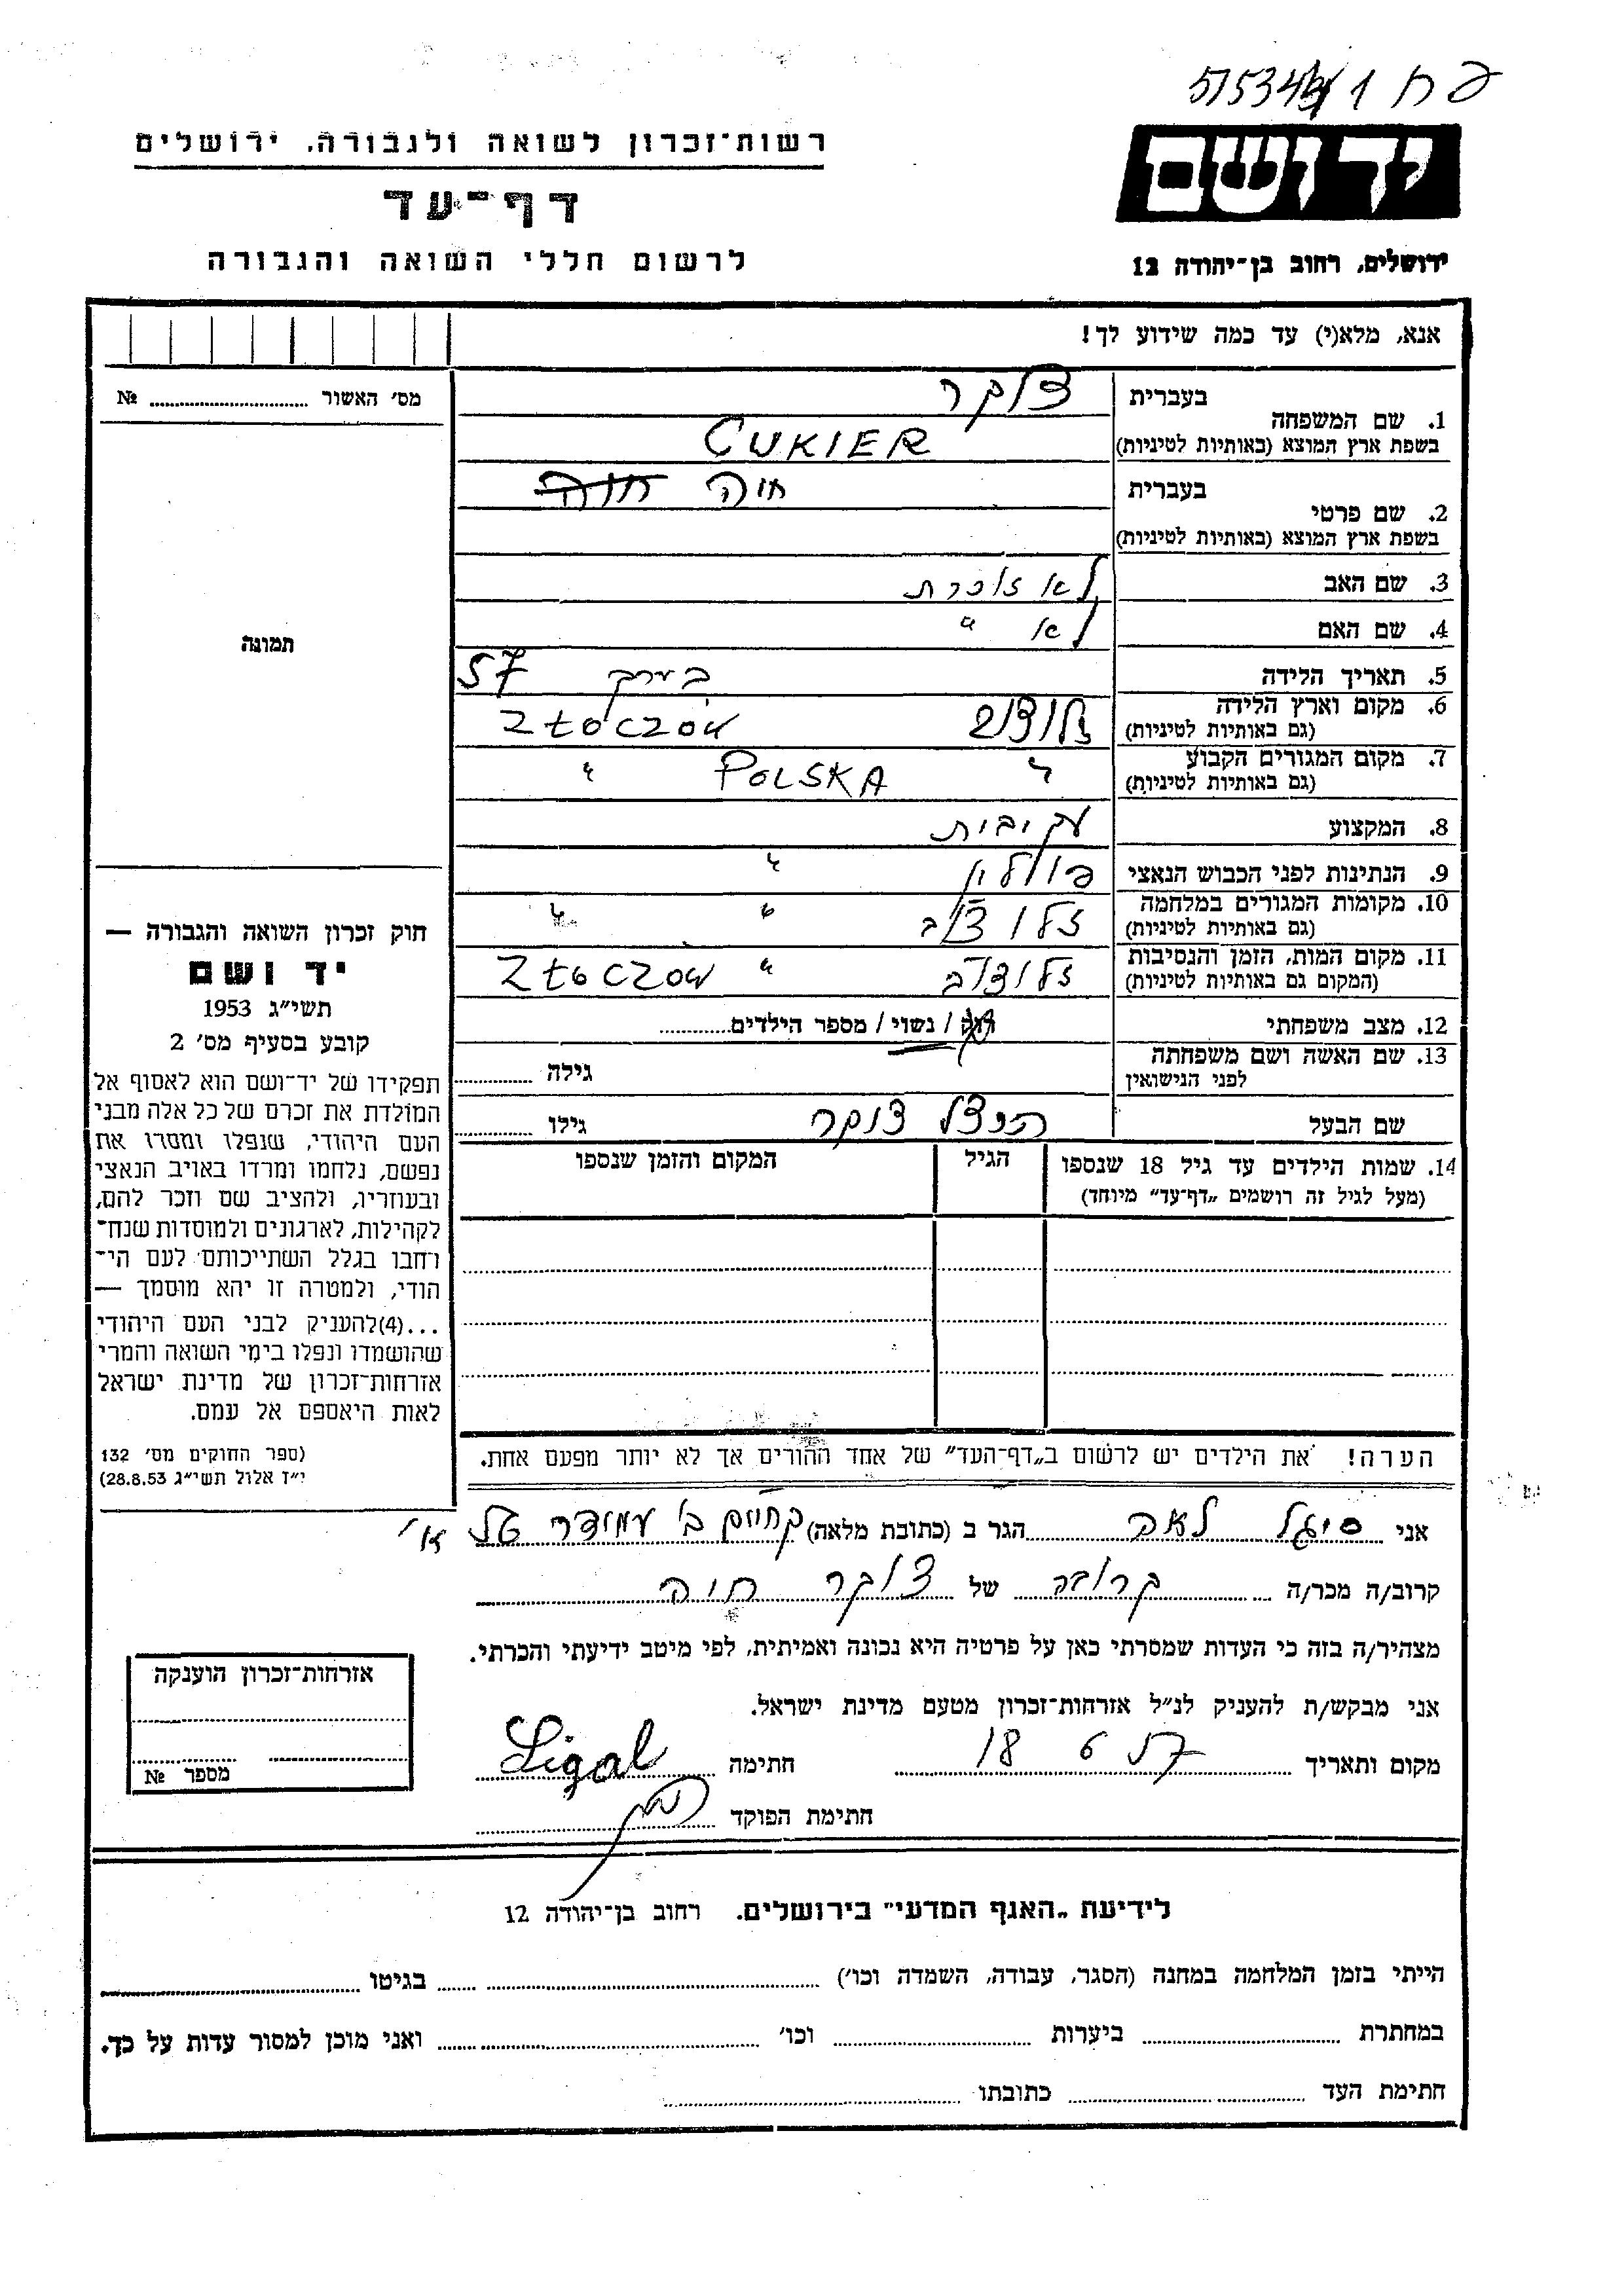 פח 1
רשות־זכרון לשואה ולגבורה. ירושלים
יד ושם
דף־עד
לרשום חללי השואה והגבורה
ירושלים, רחוב בן־יהודה 12
אנא, מלא(י) עד כמה שידוע לך!
מס׳ האשור № 
1. שם המשפחה
בעברית צוקר
בשפת ארץ המוצא (באותיות לטיניות) CUKIER
2. שם פרטי
בעברית חיה
בשפת ארץ המוצא (באותיות לטיניות)
3. שם האב לא זוכרת
4. שם האם לא "
5. תאריך הלידה בערך 57
6. מקום וארץ הלידה Złoczów
(גם באותיות לטיניות)
7. מקום המגורים הקבוע " POLSKA "
(גם באותיות לטיניות)
8. המקצוע
9. הנתינות לפני הכבוש הנאצי פולין "
10. מקומות המגורים במלחמה זלוצ'וב " "
(גם באותיות לטיניות)
11. מקום המות, הזמן והנסיבות זלוצ'וב " Złoczów
(המקום גם באותיות לטיניות)
12. מצב משפחתי רווק / נשוי / מספר הילדים
13. שם האשה ושם משפחתה
לפני הנישואין גילה
שם הבעל הנצל צוקר גילו
14. שמות הילדים עד גיל 18 שנספו הגיל המקום והזמן שנספו
(מעל לגיל זה רושמים „דף־עד" מיוחד)
הערה! את הילדים יש לרשום ב„דף־העד" של אחד ההורים אך לא יותר מפעם אחת.
תמונה
חוק זכרון השואה והגבורה —
יד ושם
תשי״ג 1953
קובע בסעיף מס׳ 2
תפקידו של יד־ושם הוא לאסוף אל
המולדת את זכרם של כל אלה מבני
העם היהודי, שנפלו ומסרו את
נפשם, נלחמו ומרדו באויב הנאצי
ובעוזריו, ולהציב שם וזכר להם,
לקהילות, לארגונים ולמוסדות שנח־
רחבו בגלל השתייכותם לעם הי־
הודי, ולמטרה זו יהא מוסמך —
...(4)להעניק לבני העם היהודי
שהושמדו ונפלו בימי השואה והמרי
אזרחות־זכרון של מדינת ישראל
לאות היאספם אל עמם.
(ספר החוקים מס׳ 132
י״ז אלול תשי״ג 28.8.53)
אני סיגל לאה הגר ב (כתובת מלאה)
קרוב/ה מכר/ה קרובה של צוקר חיה
מצהיר/ה בזה כי העדות שמסרתי כאן על פרטיה היא נכונה ואמיתית, לפי מיטב ידיעתי והכרתי.
אני מבקש/ת להעניק לנ״ל אזרחות־זכרון מטעם מדינת ישראל.
מקום ותאריך 18 6 57 חתימה Sigal
חתימת הפוקד
אזרחות־זכרון הוענקה
מספר №
לידיעת „האגף המדעי" בירושלים. רחוב בן־יהודה 12
הייתי בזמן המלחמה במחנה (הסגר, עבודה, השמדה וכו׳) בגיטו
במחתרת ביערות וכו׳ ואני מוכן למסור עדות על כך.
חתימת העד כתובתו